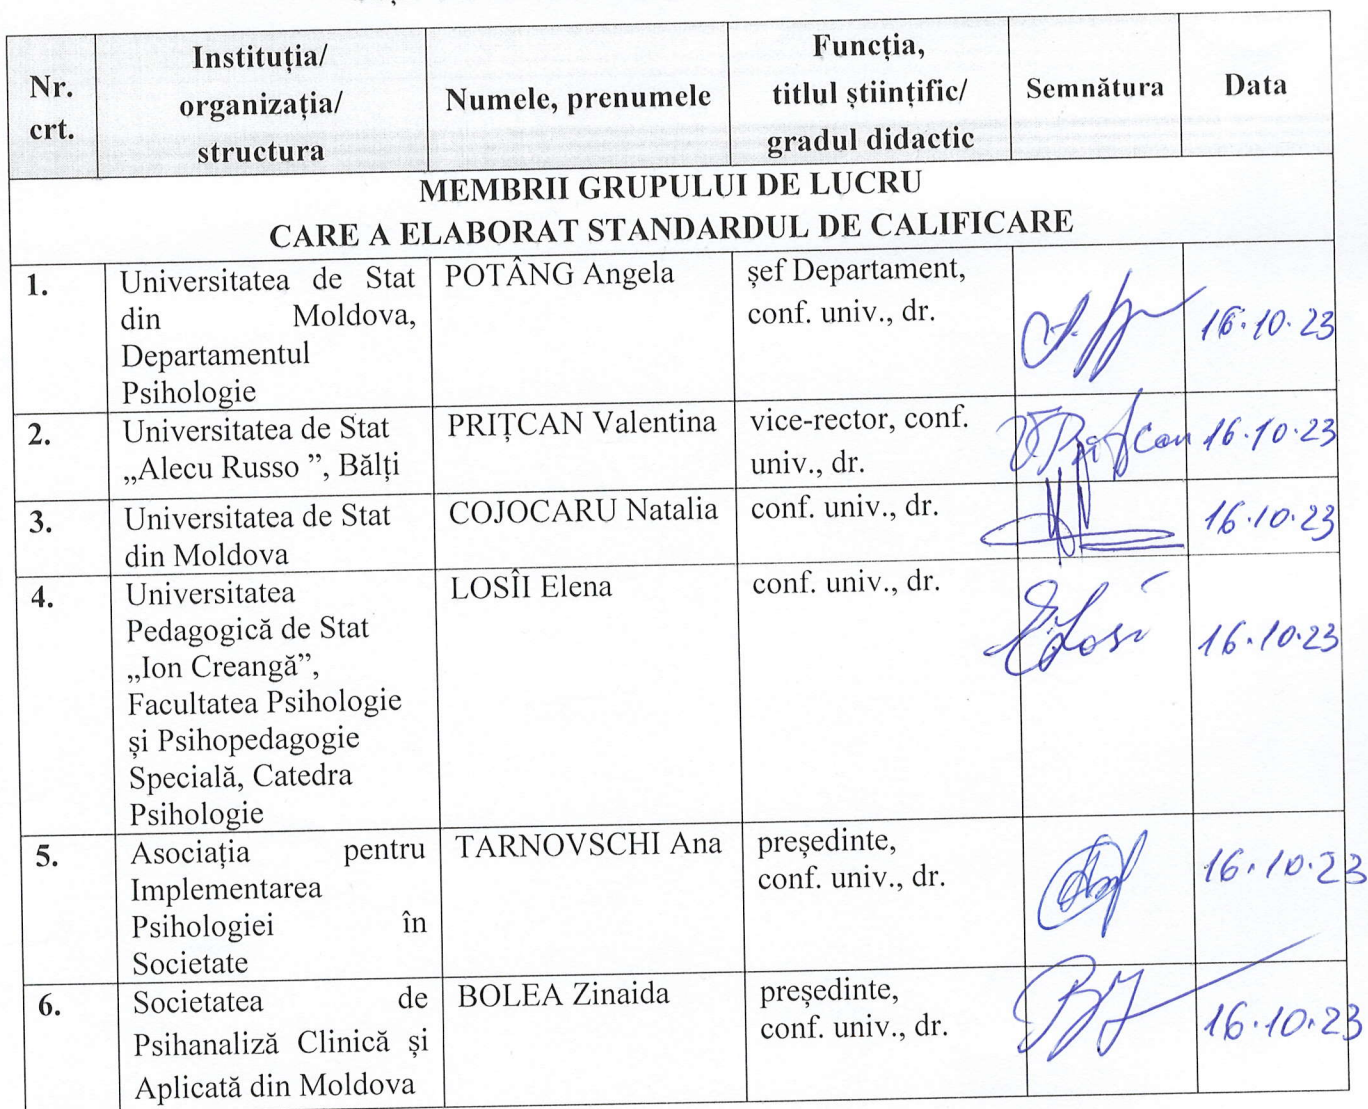 Nr. crt.
Instituția/ organizația/ structura
Numele, prenumele
Funcția, titlul științific/ gradul didactic
Semnătura
Data
MEMBRII GRUPULUI DE LUCRU
CARE A ELABORAT STANDARDUL DE CALIFICARE
1.
Universitatea de Stat
din Moldova,
Departamentul
Psihologie
POTÂNG Angela
șef Departament,
conf. univ., dr.
16.10.23
2.
Universitatea de Stat
„Alecu Russo ”, Bălți
PRIȚCAN Valentina
vice-rector, conf.
univ., dr.
16.10.23
3.
Universitatea de Stat
din Moldova
COJOCARU Natalia
conf. univ., dr.
16.10.23
4.
Universitatea
Pedagogică de Stat
„Ion Creangă”,
Facultatea Psihologie
și Psihopedagogie
Specială, Catedra
Psihologie
LOSÎI Elena
conf. univ., dr.
16.10.23
5.
Asociația pentru
Implementarea
Psihologiei în
Societate
TARNOVSCHI Ana
președinte,
conf. univ., dr.
16.10.23
6.
Societatea de
Psihanaliză Clinică și
Aplicată din Moldova
BOLEA Zinaida
președinte,
conf. univ., dr.
16.10.23